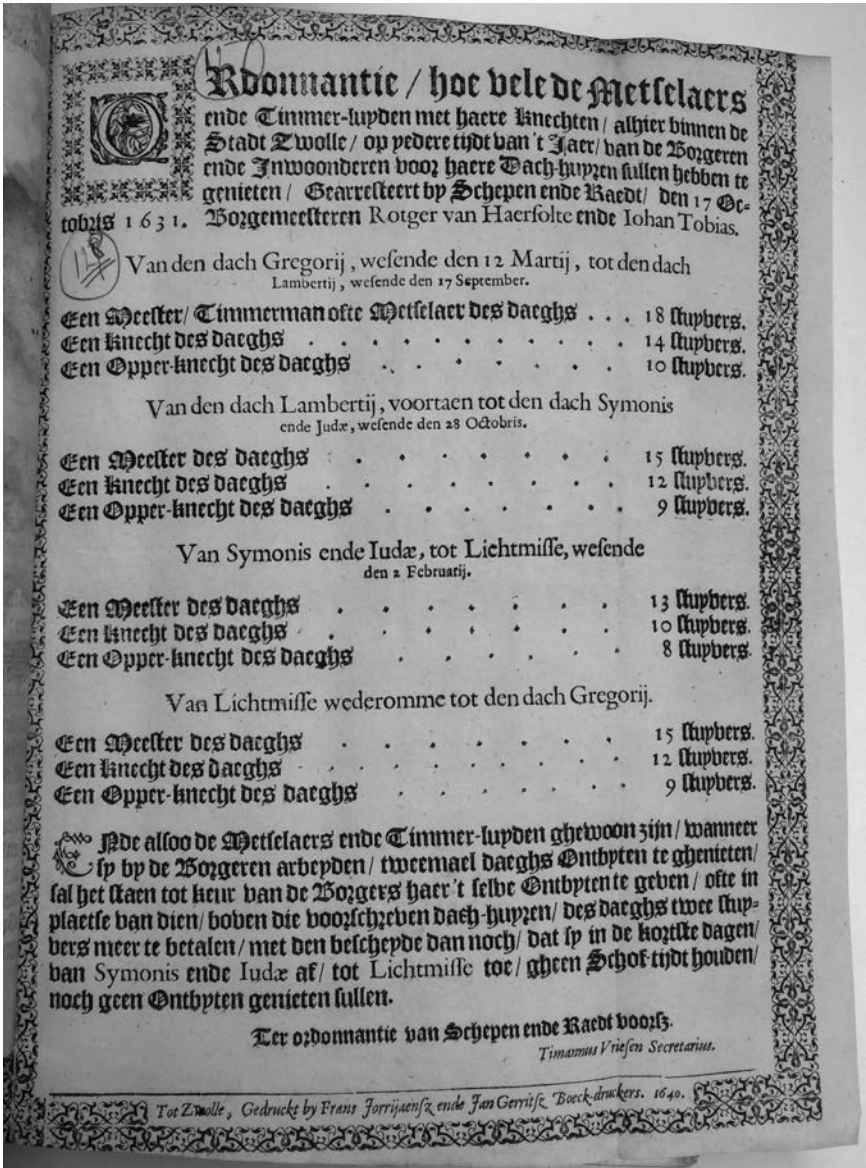 ORdonnantie / hoe vele de Metselaers
ende Timmer-luyden met haere Knechten / alhier binnen de
Stadt Zwolle / op yedere tijdt van 't Jaer / van de Borgeren
ende Inwoonderen voor haere Dach-huyren sullen hebben te
genieten / Gearresteert by Schepen ende Raedt / den 17 Oc-
tobris 1631. Borgemeesteren Rotger van Haersolte ende Iohan Tobias.
Van den dach Gregorij, wesende den 12 Martij, tot den dach
Lambertij, wesende den 17 September.
Een Meester / Timmerman ofte Metselaer des daeghs . . . 18 stuyvers.
Een Knecht des daeghs . . . . . . . . . . 14 stuyvers.
Een Opper-knecht des daeghs . . . . . . . 10 stuyvers.
Van den dach Lambertij, voortaen tot den dach Symonis
ende Judæ, wesende den 28 Octobris.
Een Meester des daeghs . . . . . . . . 15 stuyvers.
Een Knecht des daeghs . . . . . . . . 12 stuyvers.
Een Opper-knecht des daeghs . . . . . . 9 stuyvers.
Van Symonis ende Iudæ, tot Lichtmisse, wesende
den 2 Februarij.
Een Meester des daeghs . . . . . . . 13 stuyvers.
Een Knecht des daeghs . . . . . . . . 10 stuyvers.
Een Opper-knecht des daeghs . . . . . . 8 stuyvers.
Van Lichtmisse wederomme tot den dach Gregorij.
Een Meester des daeghs . . . . . . . 15 stuyvers.
Een Knecht des daeghs . . . . . . . . 12 stuyvers.
Een Opper-knecht des daeghs . . . . . . 9 stuyvers.
ENde alsoo de Metselaers ende Timmer-luyden ghewoon zijn / wanneer
sy by de Borgeren arbeyden / tweemael daeghs Ontbyten te ghenieten /
sal het staen tot keur van de Borgers haer 't selve Ontbyten te geven / ofte in
plaetse van dien / boven die voorschreven dach-huyren / des daeghs twee stuy-
vers meer te betalen / met den bescheyde dan noch / dat sy in de kortste dagen /
van Symonis ende Iudæ af / tot Lichtmisse toe / gheen Schof-tijdt houden /
noch geen Ontbyten genieten sullen.
Ter ordonnantie van Schepen ende Raedt voorsz.
Timannus Vriesen Secretarius.
Tot Zwolle, Gedruckt by Frans Jorrijaensz ende Jan Gerritsz Boeck-druckers. 1640.